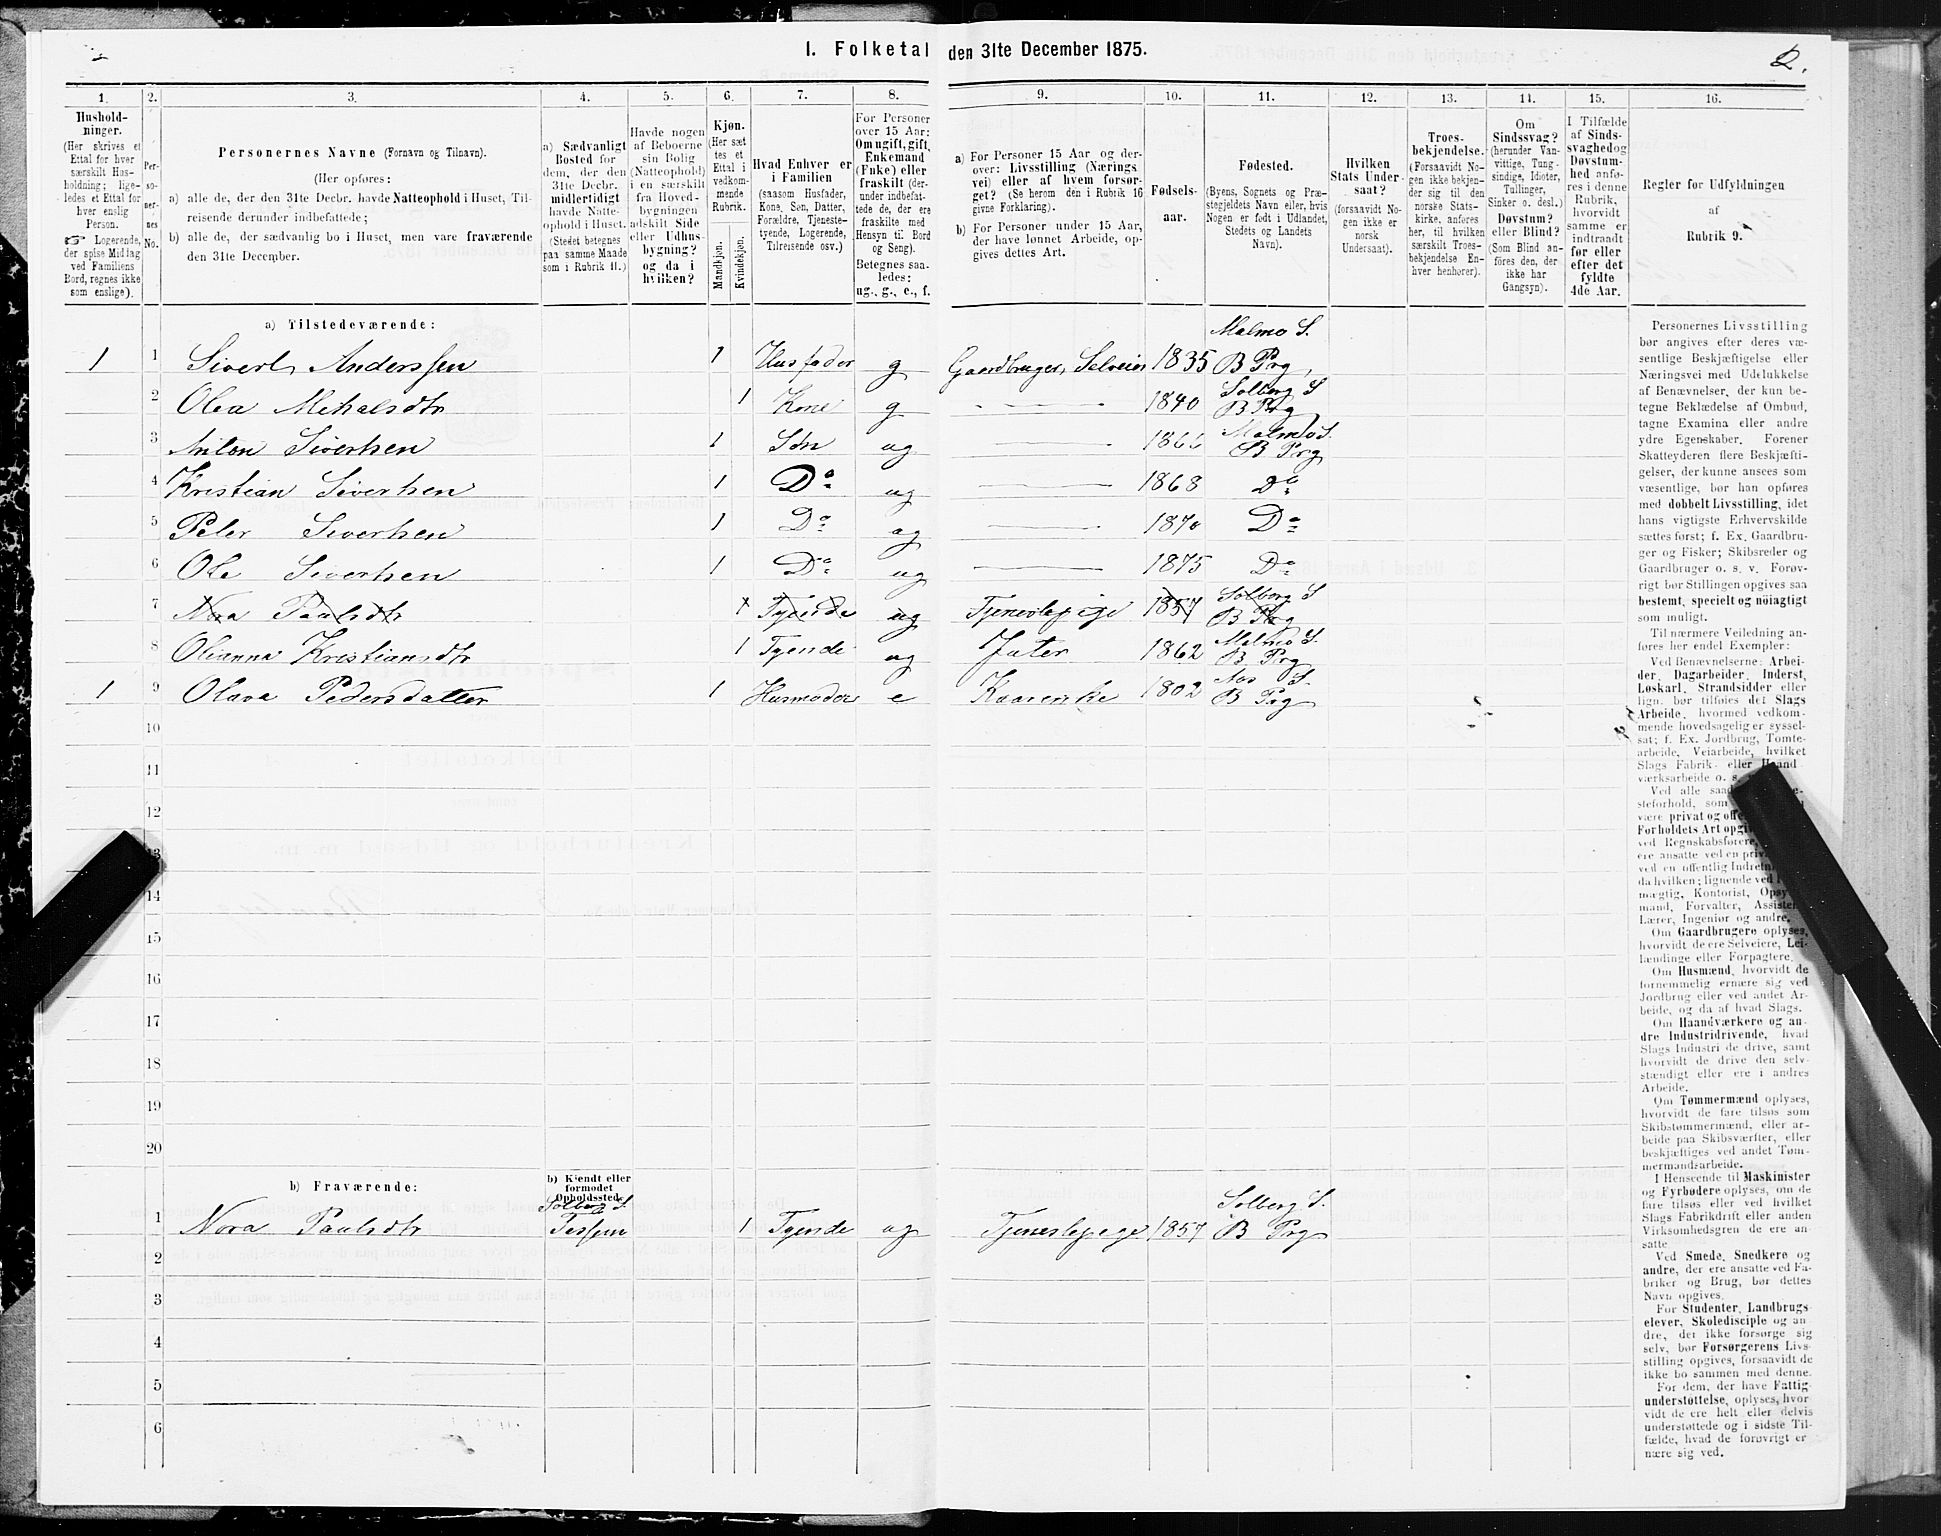 I. Folketal den 31te December 1875.
2.
1. 2. 3. 4. 5. 6. 7. 8. 9. 10. 11. 12. 13. 14. 15. 16.
Hushold-
ninger.
(Her skrives et
Ettal for hver
særskilt Hus-
holdning; lige-
ledes et Ettal for
hver enslig
Person.
☞ Logerende,
der spise Middag
ved Familiens
Bord, regnes ikke
som enslige).
Per-
so-
ner-
nes
No.
Personernes Navne (Fornavn og Tilnavn).
(Her opføres:
a) alle de, der den 31te Decbr. havde Natteophold i Huset, Til-
reisende derunder indbefattede;
b) alle de, der sædvanlig bo i Huset, men vare fraværende
den 31te December.
a) Sædvanligt
Bosted for
dem, der den
31te Decbr.
midlertidigt
havde Natte-
ophold i Huset.
(Stedet betegnes
paa samme Maade
som i Rubrik 11.)
Havde nogen
af Beboerne
sin Bolig
(Natteophold)
i en særskilt
fra Hoved-
bygningen
adskilt Side
eller Udhus-
bygning?
og da i
hvilken?
Kjøn.
(Her sæt
tes et
Ettal i
vedkom-
mende
Rubrik.
Mandkjøn.
Kvindekjøn.
Hvad Enhver er
i Familien
(saasom Husfader,
Kone, Søn, Datter,
Forældre, Tjeneste-
tyende, Logerende,
Tilreisende osv.)
For Personer
over 15 Aar:
Om ugift, gift,
Enkemand
(Enke) eller
fraskilt (der-
under indbefat-
tede de, der ere
fraskilte med
Hensyn til Bord
og Seng).
Betegnes saa-
ledes:
ug., g., e., f.
a) For Personer 15 Aar og der-
over: Livsstilling (Nærings
vei) eller af hvem forsør-
get? (Se herom den i Rubrik 16
givne Forklaring).
b) For Personer under 15 Aar,
der have lønnet Arbeide, op-
gives dettes Art.
Fødsels-
aar.
Fødested.
(Byens, Sognets og Præ-
stegjeldets Navn eller, hvis
Nogen er født i Udlandet,
Stedets og Landets
Navn).
Hvilken
Stats Under-
saat?
(forsaavidt No-
gen ikke er
norsk
Undersaat).
Troes-
bekjendelse.
(Forsaavidt No-
gen ikke bekjen-
der sig til den
norske Stats-
kirke, anføres
her, til hvilken
særskilt Troes-
bekjendelse En-
hver henhører).
Om
Sindssvag?
(herunder Van-
vittige, Tung-
sindige, Idioter,
Tullinger,
Sinker o. desl.)
Døvstum?
eller Blind?
(Som Blind an-
føres den, der
ikke har
Gangsyn).
I Tilfælde
af Sinds-
svaghed og
Døvstum-
hed anfø-
res i denne
Rubrik,
hvorvidt
samme er
indtraadt
før eller
efter det
fyldte
4de Aar.
Regler for Udfyldningen
af
Rubrik 9.
a) Tilstedeværende:
1 1 Sivert Anderssen 1 Husfader g Gaardbruger, Selveier 1835 Malmo S. B Prg,
2 Olea Mikalsdtr 1 Kone g — 1840 Solberg S B Prg
3 Anton Sivertsen 1 Søn ug — Malmo S. B Prg
4 Kristian Sivertsen 1 Do ug — 1868 Do
5 Peter Sivertsen 1 Do ug — 1870 Do
6 Ole Sivertsen 1 Do ug — 1875 Do
7 Nora Paulsdtr 1 Tyende ug Tjenestepige 1857 Solberg S B Prg
8 Olianna Kristiansdtr 1 Tyende ug Jæter 1862 Malmo S. B Prg
1 9 Olava Pedersdatter 1 Husmoder e Kaarenke 1802 S. B Prg
10
11
12
13
14
15
16
17
18
19
20
b) Fraværende:
b) Kjendt eller
formodet
Opholdssted.
1 Nora Paulsdtr Solberg S. Tessem 1 Tyende ug Tjenestepige 1857 Solberg S. B Prg
2
3
4
5
6
Personernes Livsstilling
bør angives efter deres væ-
sentlige Beskjæftigelse eller
Næringsvei med Udelukkelse
af Benævnelser, der kun be-
tegne Beklædelse af Ombud,
tagne Examina eller andre
ydre Egenskaber. Forener
Skatteyderen flere Beskjæfti-
gelser, der kunne ansees som
væsentlige, bør han opføres
med dobbelt Livsstilling, idet
hans vigtigste Erhvervskilde
sættes først; f. Ex. Gaardbru-
ger og Fisker; Skibsreder og
Gaardbruger o. s. v. Forøv-
rigt bør Stillingen opgives saa
bestemt, specielt og nøiagtigt
som muligt.
Til nærmere Veiledning an-
føres her endel Exempler:
Ved Benævnelserne: Arbei-
der, Dagarbeider, Inderst,
Løskarl, Strandsidder eller
lign. bør tilføies det Slags
Arbeide, hvormed vedkom-
mende hovedsagelig er syssel-
sat; f. Ex. Jordbrug, Tomte-
arbeide, Veiarbeide, hvilket
Slags Fabrik- eller Haand-
værksarbeide o. s.
Ved alle saad
steforhold, som
være privat og off
Forholdets Art opgiv
ved Regnskabsførere,
ere ansatte ved en priv
ved en offentlig Indretn
da hvilken; lignende ved
mægtig, Kontorist, Opsy
mand, Forvalter, Assistent
Lærer, Ingeniør og andre.
Om Gaardbrugere oplyses,
hvorvidt de ere Selveiere, Lei-
lændinge eller Forpagtere.
Om Husmænd, hvorvidt de
fornemmelig ernære sig ved
Jordbrug eller ved andet Ar-
beide, og da af hvad Slags.
Om Haandværkere og an-
dre Industridrivende, hvad
Slags Industri de drive, samt
hvorvidt de drive den selv-
stændigt eller ere i andres
Arbeide.
Om Tømmermænd oplyses,
hvorvidt de fare tilsøs som
Skibstømmermænd, eller ar-
beide paa Skibsværfter, eller
beskjæftiges ved andet Tøm-
mermandsarbeide.
I Henseende til Maskinister
og Fyrbødere oplyses, om de
fare tilsøs eller ved hvilket
Slags Fabrikdrift eller anden
Virksomhedsgren de ere an-
satte.
Ved Smede, Snedkere og
andre, der ere ansatte ved Fa-
briker og Brug, bør dettes
Navn opgives.
For Studenter, Landbrugs-
elever, Skoledisciple og an
dre, der ikke forsørge sig
selv, bør Forsørgerens Livs-
stilling opgives, forsaavidt de
ikke bo sammen med denne.
For dem, der have Fattig-
understøttelse, oplyses, hvor
vidt de ere helt eller delvis
understøttede og i sidste Til-
fælde, hvad de forøvrigt er
nære sig ved.